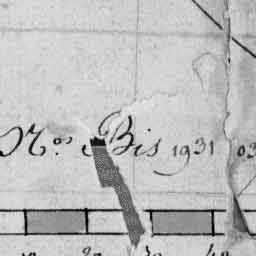 Nos Bis 1931 03
10 20 30 40